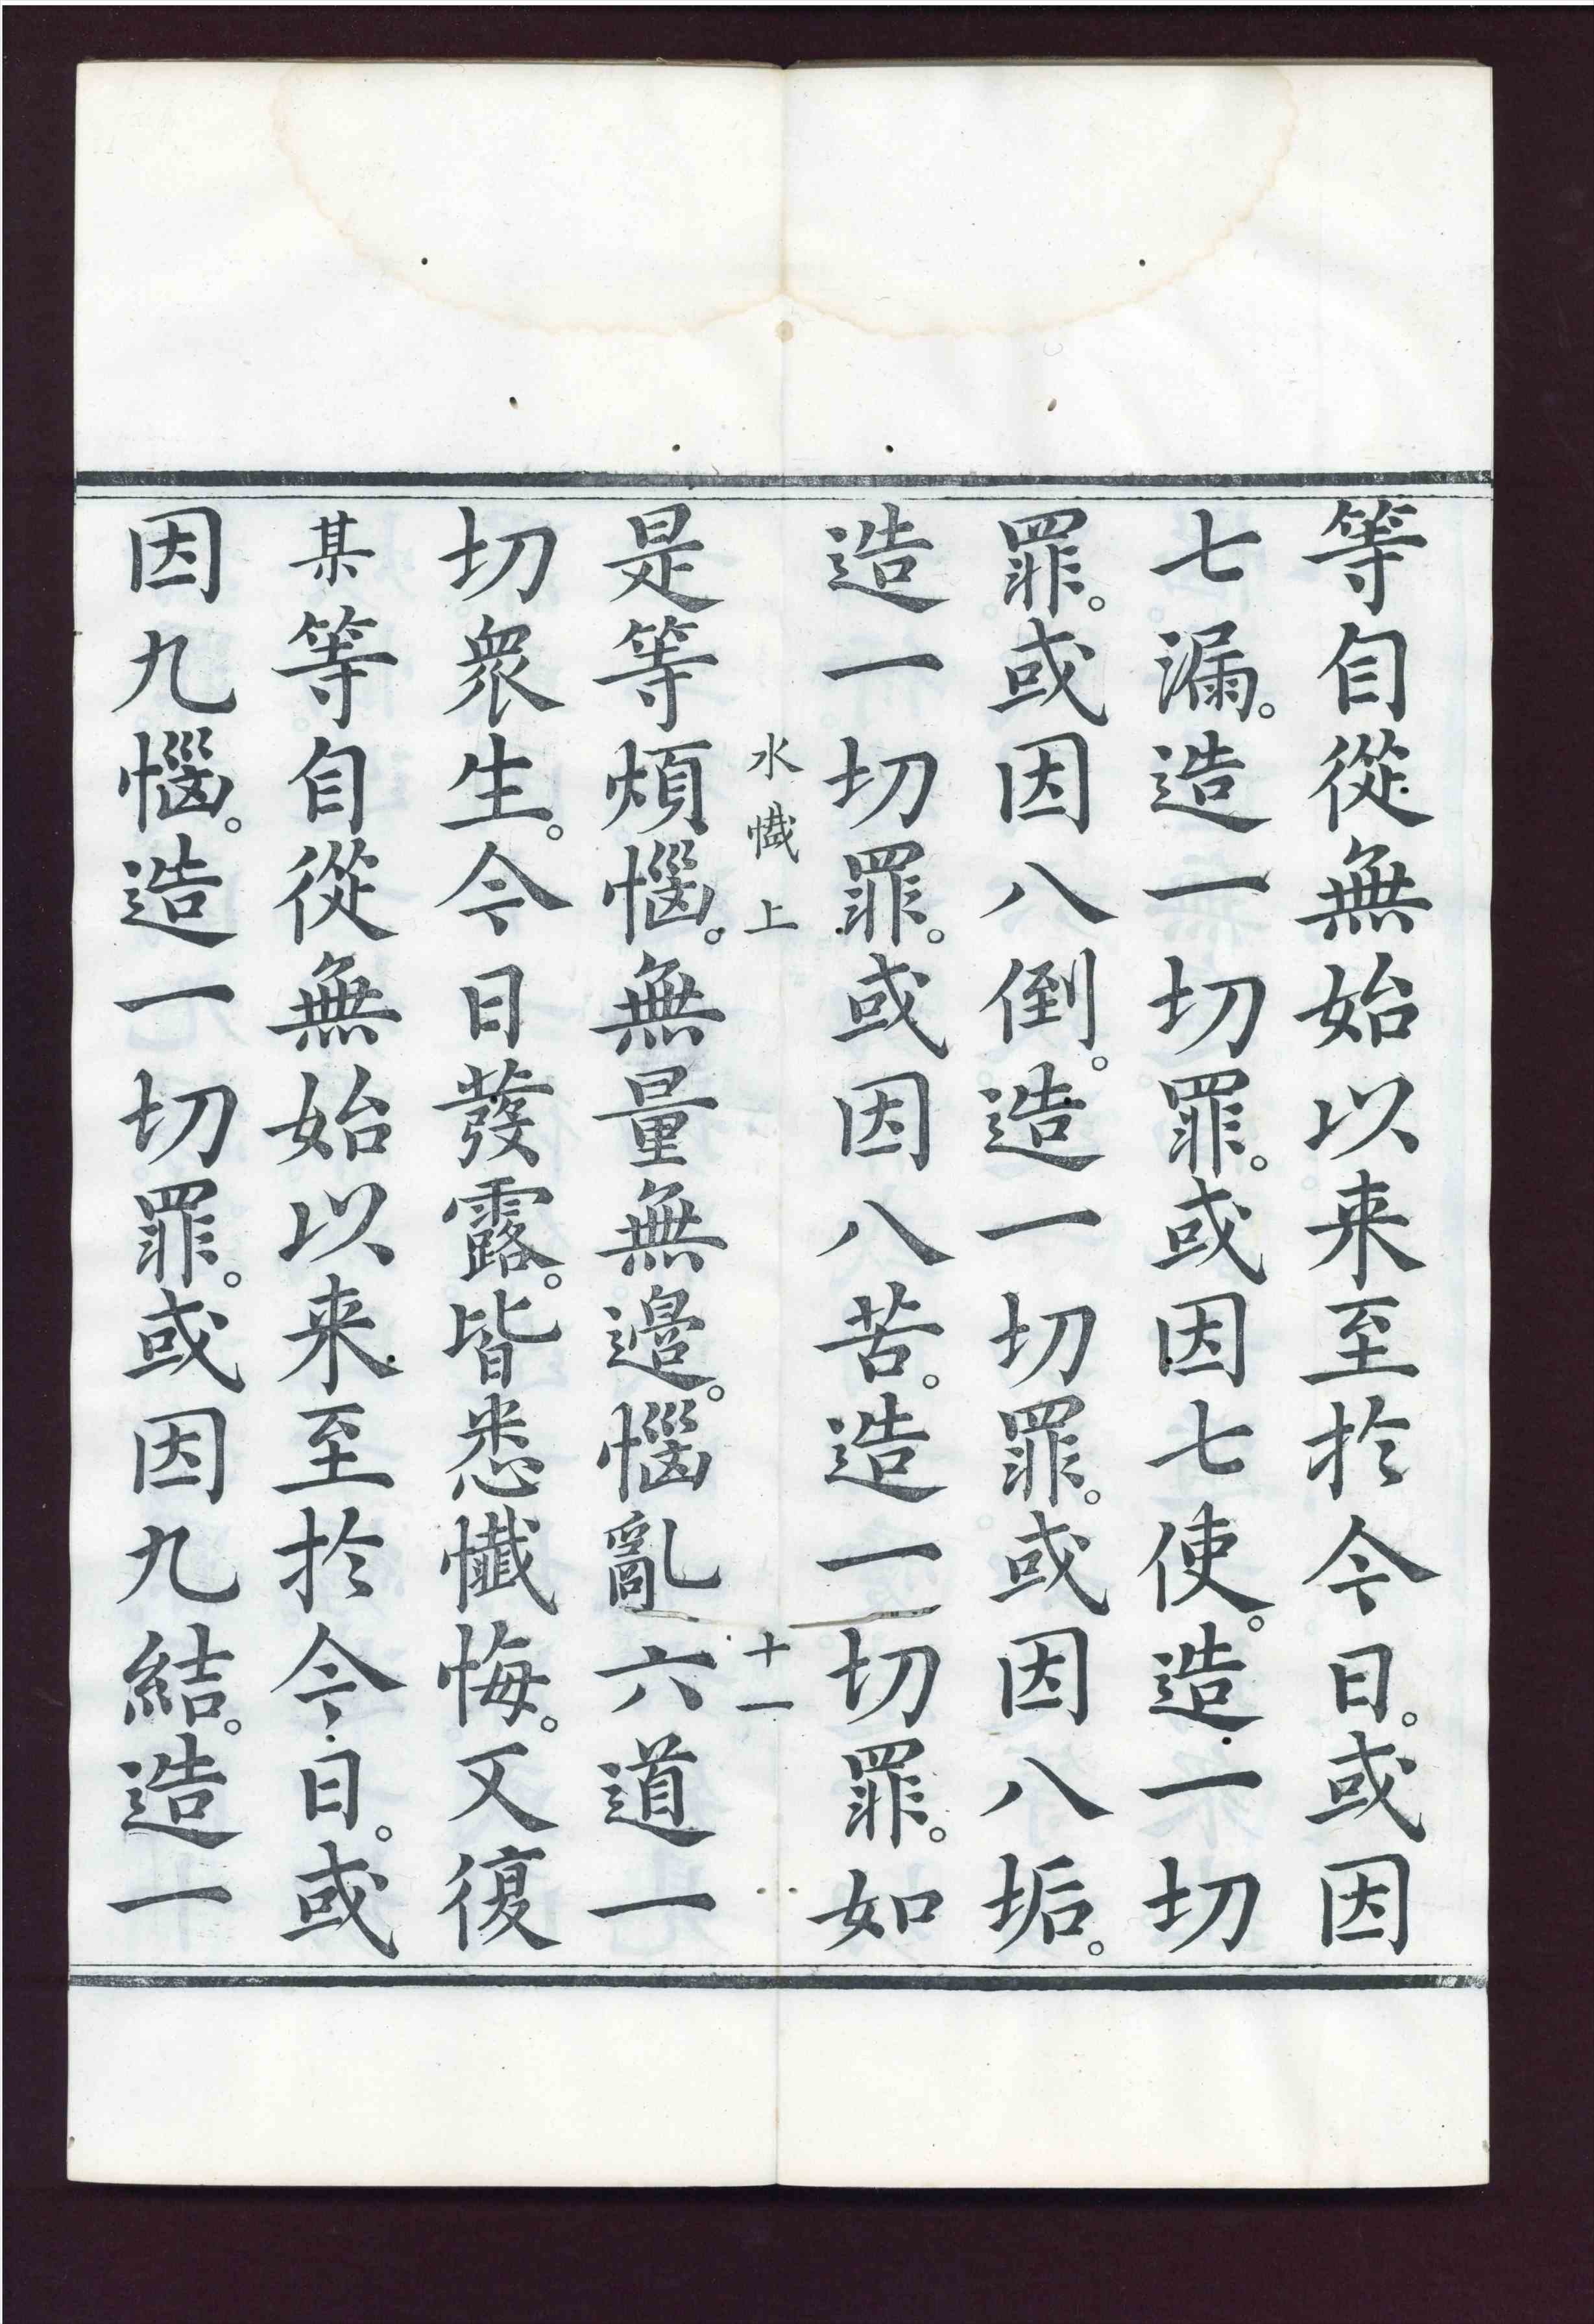 等自從無始以来至於今日。或因
七漏。造一切罪。或因七使。造一切
罪。或因八倒。造一切罪。或因八垢。
造一切罪。或因八苦。造一切罪。如
水懴上
十一
是等煩惱。無量無邊。惱亂六道一
切衆生。今日發露。皆悉懺悔。又復
某等自從無始以来至於今日。或
因九惱。造一切罪。或因九結。造一